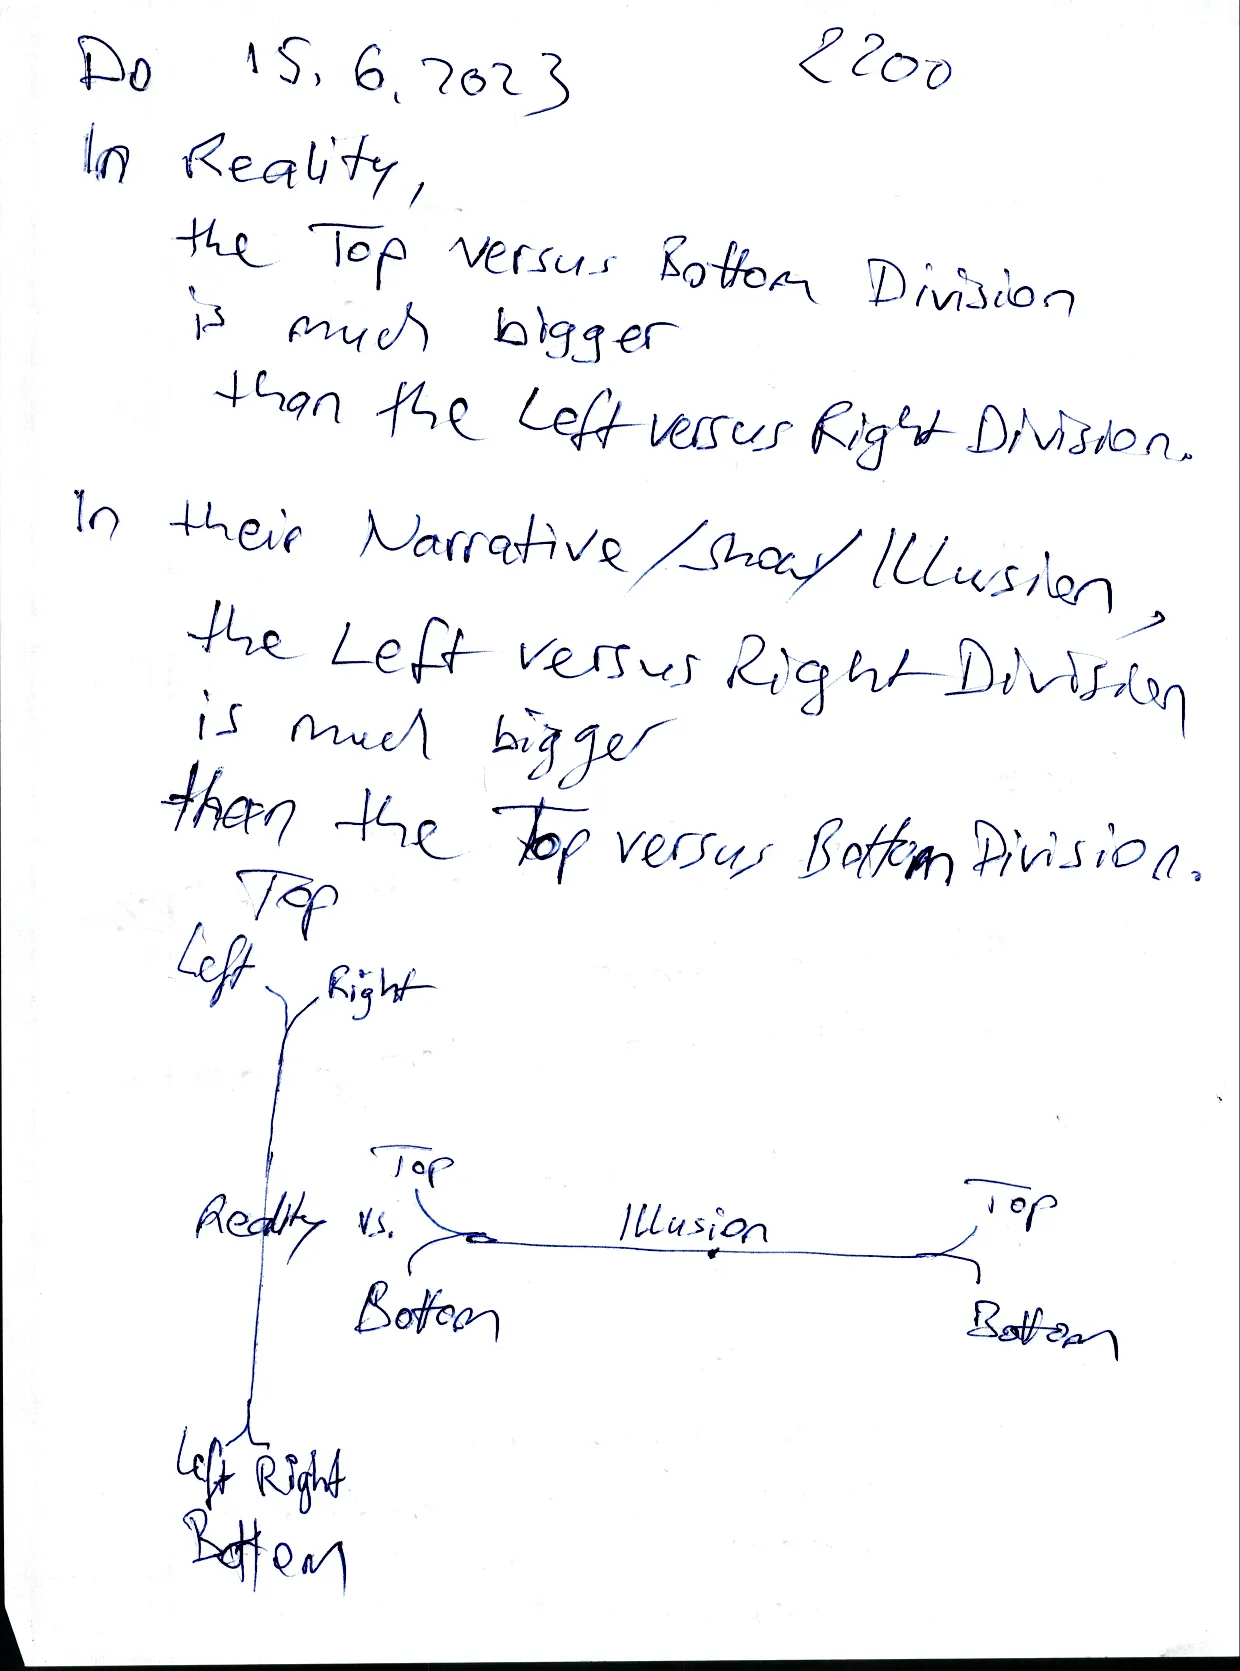 Do 15.6.2023 2200
In Reality,
the Top versus Bottom Division
is much bigger
than the Left versus Right Division.
In their Narrative/Show/Illusion,
the Left versus Right Division
is much bigger
than the Top versus Bottom Division.
Top
Left Right
Top
Top
Reality vs. Illusion
Bottom
Bottom
Left Right
Bottom